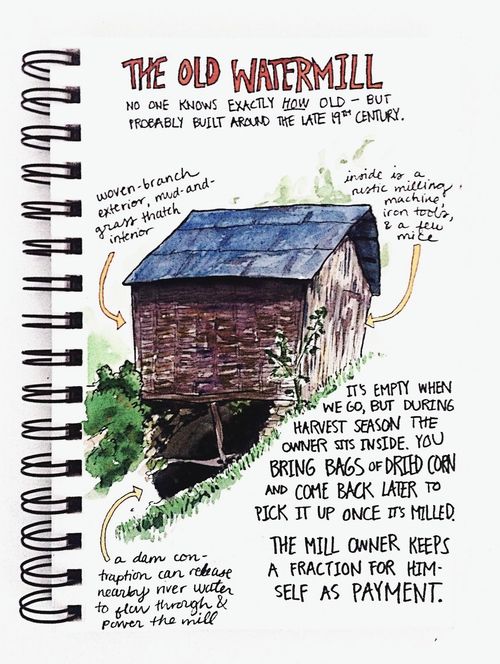 THE OLD WATERMILL
NO ONE KNOWS EXACTLY HOW OLD - BUT
PROBABLY BUILT AROUND THE LATE 19TH CENTURY.
woven-branch
exterior, mud-and-
grass thatch
interior
inside is a
rustic milling
machine,
iron tools,
& a few
mice
IT'S EMPTY WHEN
WE GO, BUT DURING
HARVEST SEASON THE
OWNER SITS INSIDE. YOU
BRING BAGS OF DRIED CORN
AND COME BACK LATER TO
PICK IT UP ONCE IT'S MILLED.
THE MILL OWNER KEEPS
A FRACTION FOR HIM-
SELF AS PAYMENT.
a dam con-
traption can release
nearby river water
to flow through &
power the mill